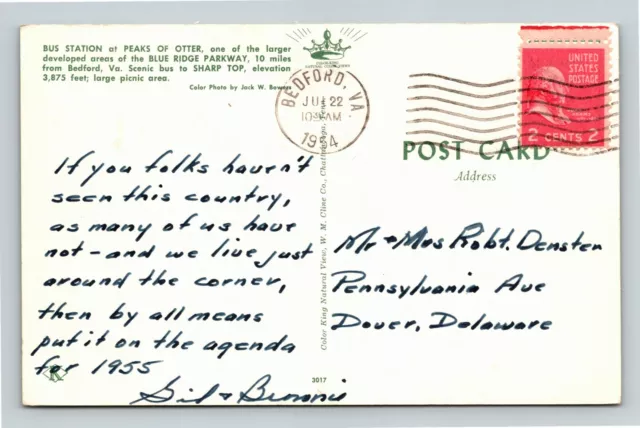 BUS STATION at PEAKS OF OTTER, one of the larger
developed areas of the BLUE RIDGE PARKWAY, 10 miles
from Bedford, Va. Scenic bus to SHARP TOP, elevation
3,875 feet; large picnic area.
Color Photo by Jack W. Bowers
BEDFORD, VA
JUL 22
AM
1954
UNITED
STATES
POSTAGE
2 CENTS 2
POST CARD
Address
If you folks haven't
seen this country,
as many of us have
not - and we live just
around the corner,
then by all means
put it on the agenda
for 1955
Sid & Bunnie
Color King Natural View, W. M. Cline Co., Chattanooga, Tenn.
Mr & Mrs Robt. Densten
Pennsylvania Ave
Dover, Delaware
K
3017